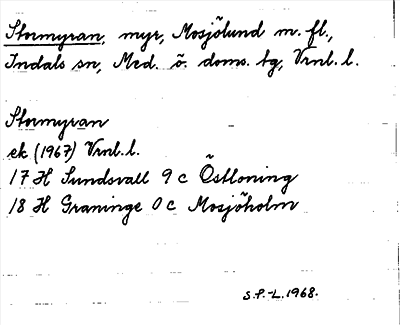 Stormyran, myr, Mosjölund m. fl.,
Indals sn, Med. ö. doms. tg, Vrnl. l.
Stormyran
ek (1967) Vrnl. l.
17 H Sundsvall 9 c Östloning
18 H Graninge 0 c Mosjöholm
S.P.-L. 1968.